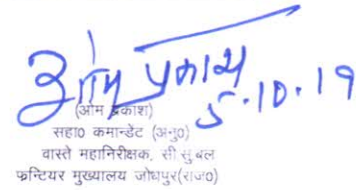 ओम प्रकाश
5.10.19
(ओम प्रकाश)
सहा० कमान्डेंट (अनु०)
वास्ते महानिरीक्षक, सी सु बल
फ्रन्टियर मुख्यालय जोधपुर(राज०)